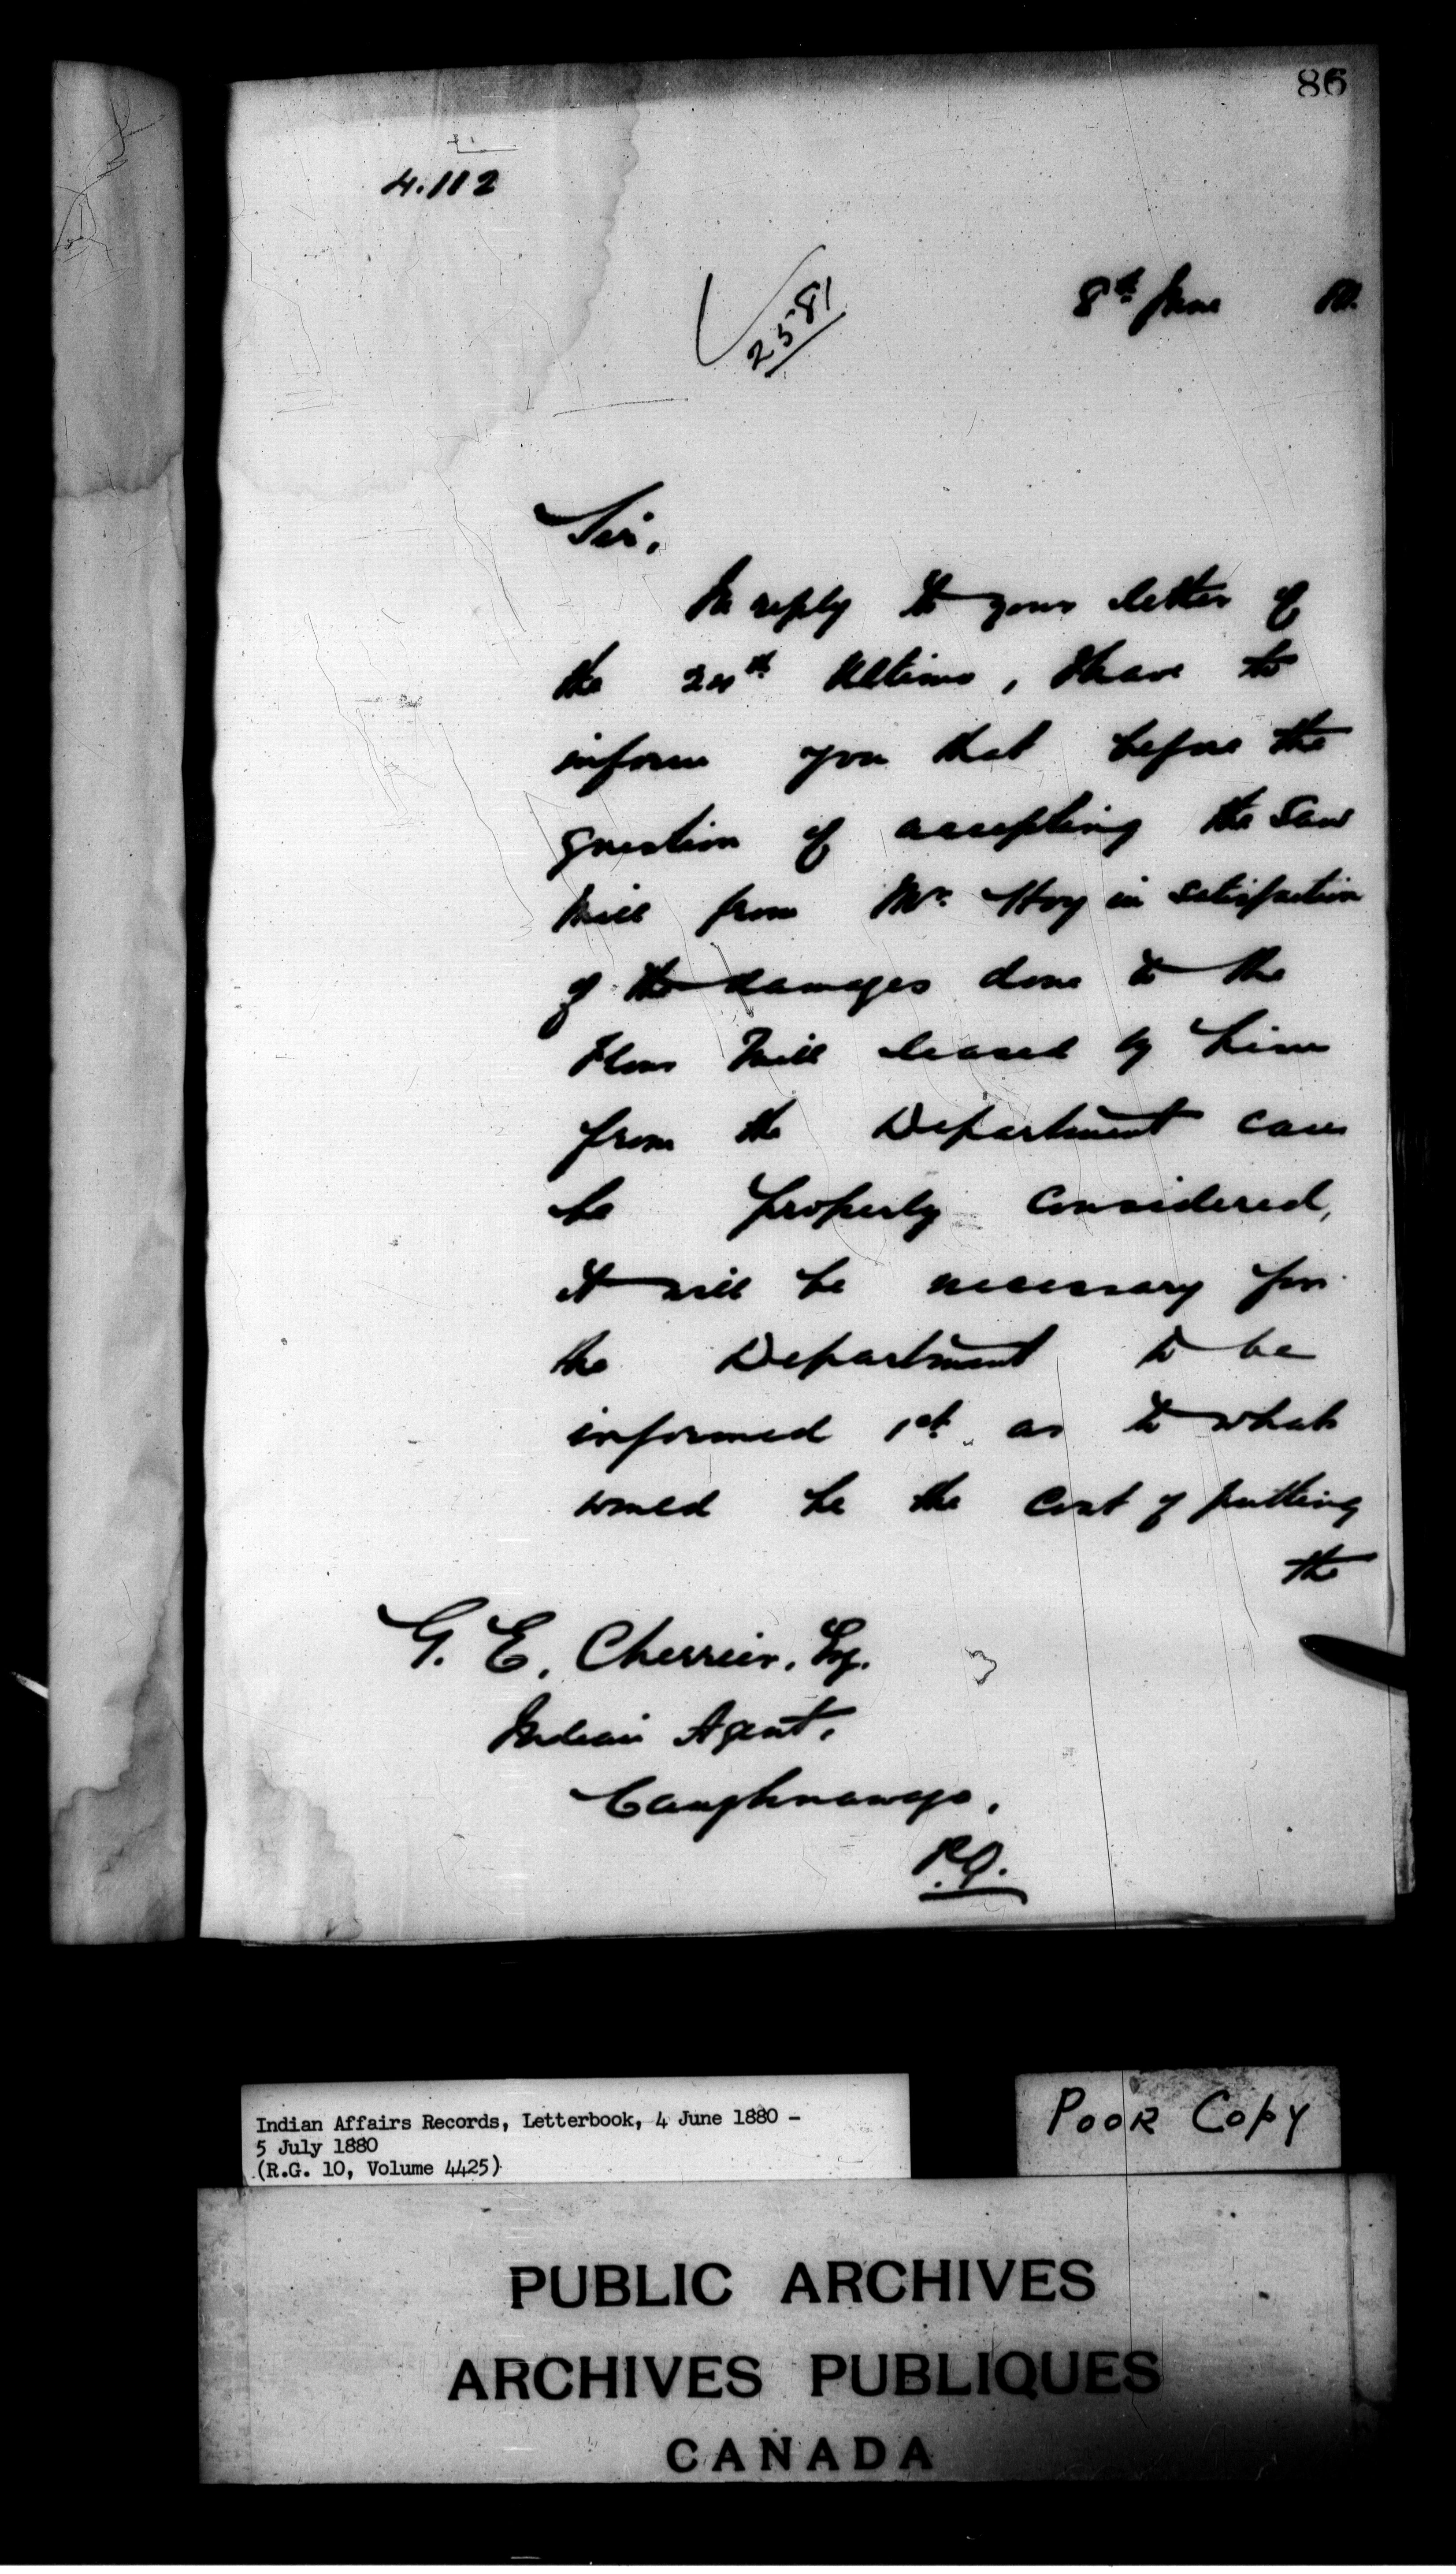 86
4.112
2581
8th June 80.
Sir,
In reply to your letter of
the 24th Ultimo, I have to
inform you that before the
question of accepting the Saw
Mill from Mr. Hoy in satisfaction
of the damages done to the
Flour Mill leased by him
from the Department can
be properly considered,
it will be necessary for
the Department to be
informed 1st as to what
would be the cost of putting
the
G. E. Cherrier, Esq.
Indian Agent,
Caughnawaga,
P.Q.
Indian Affairs Records, Letterbook, 4 June 1880 -
5 July 1880
(R.G. 10, Volume 4425)
POOR COPY
PUBLIC ARCHIVES
ARCHIVES PUBLIQUES
CANADA